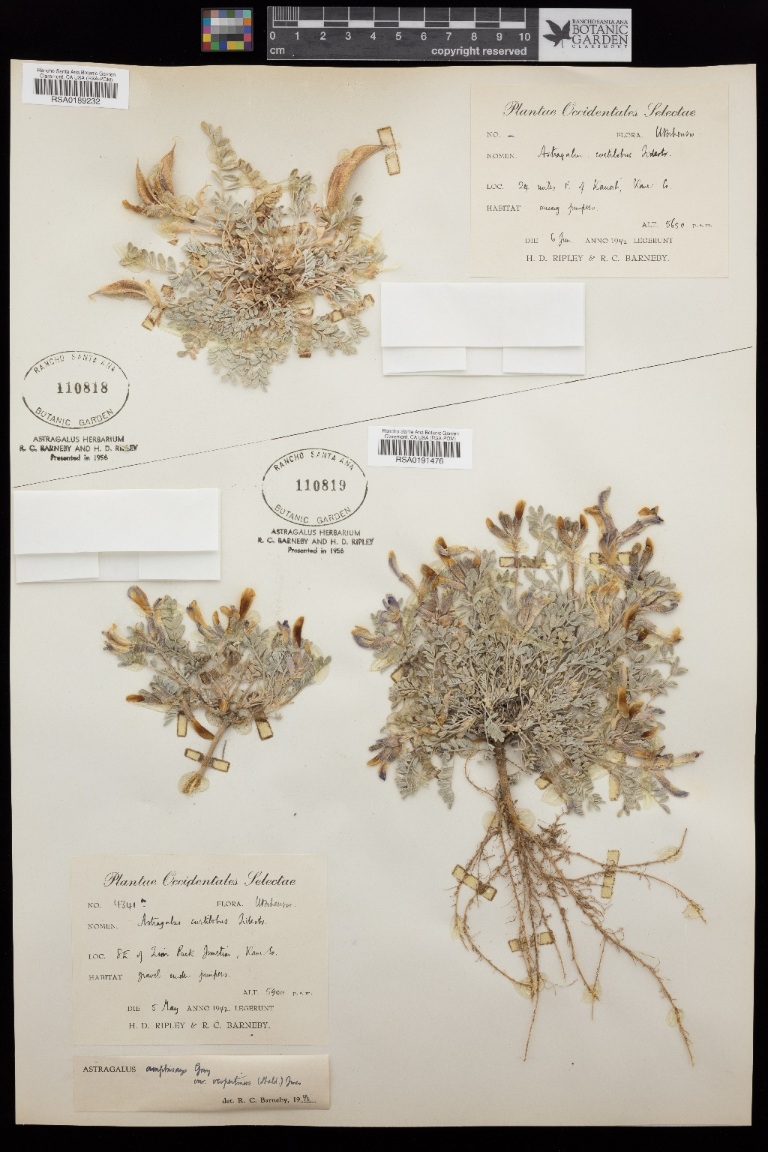 0 1 2 3 4 5 6 7 8 9 10
cm copyright reserved
RANCHO SANTA ANA
BOTANIC
GARDEN
CLAREMONT
Rancho Santa Ana Botanic Garden
Claremont, CA USA (RSA-POM)
RSA0189232
Plantae Occidentales Selectae
NO. — FLORA.
NOMEN. Astragalus
LOC. miles E. of Kanab, Kane Co.
HABITAT among junipers.
ALT. 5650 p.s.m.
DIE 6 Jun ANNO 1942 LEGERUNT
H. D. RIPLEY & R. C. BARNEBY.
RANCHO SANTA ANA
110818
BOTANIC GARDEN
ASTRAGALUS HERBARIUM
R. C. BARNEBY AND H. D. RIPLEY
Presented in 1956
Rancho Santa Ana Botanic Garden
Claremont, CA USA (RSA-POM)
RSA0191476
RANCHO SANTA ANA
110819
BOTANIC GARDEN
ASTRAGALUS HERBARIUM
R. C. BARNEBY AND H. D. RIPLEY
Presented in 1956
Plantae Occidentales Selectae
NO. 4341 FLORA.
NOMEN. Astragalus
LOC. 8 E of Zion Park Junction, Kane Co.
HABITAT gravel under junipers.
ALT. 5900 p.s.m.
DIE 5 May ANNO 1942 LEGERUNT
H. D. RIPLEY & R. C. BARNEBY.
ASTRAGALUS amphioxys Gray
var. vespertinus (Sheld.) Jones
det. R. C. Barneby, 19